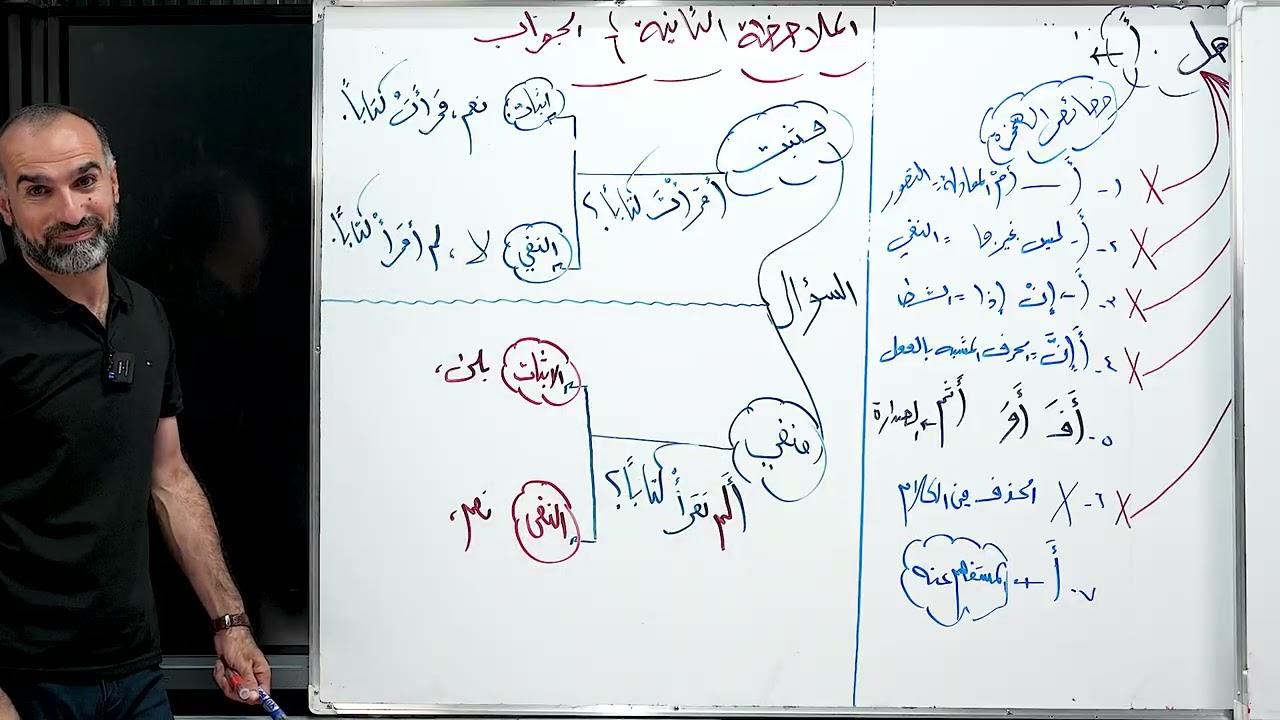 هل . أ
خصائص الهمزة
١- أ — أم المعادلة = التصور
٢- أ - ليس بغيرها = النفي
٣- أ - إنْ إذا = الشرط
٤- أ إنَّ = الحرف المشبه بالفعل
٥- أَفَ أَوَ أَثم - الصدارة
٦- X الحذف من الكلام
٧- أَ + المستفهم عنه
الملاحظة الثانية / الجواب
مثبت
أقرأْتَ كتاباً؟
إثبات
نعم، قرأتُ كتاباً.
النفي
لا، لم أقرأْ كتاباً.
السؤال
منفي
ألم تقرأْ كتاباً؟
الإثبات
بلى،
النفي
نعم،